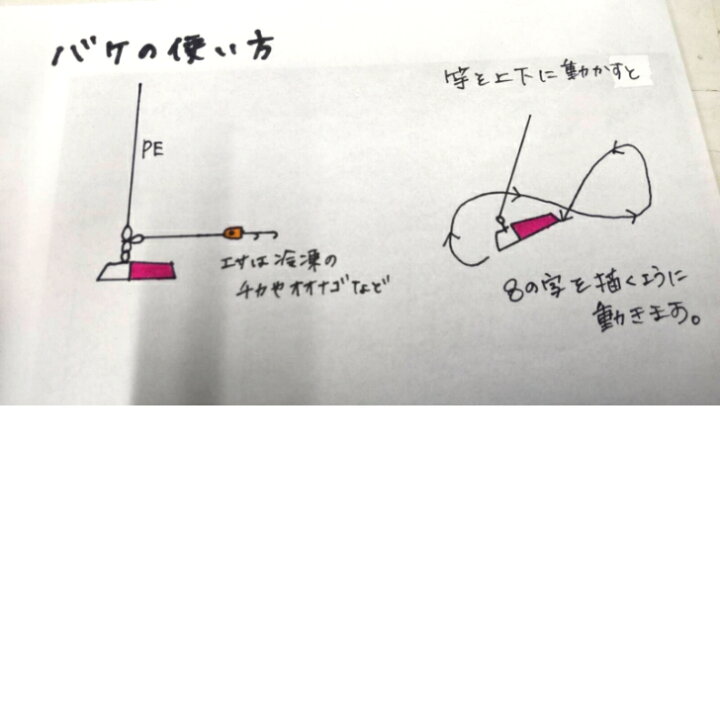 バケの使い方
PE
エサは冷凍の
チカやオオナゴなど
竿を上下に動かすと
8の字を描くように
動きます。